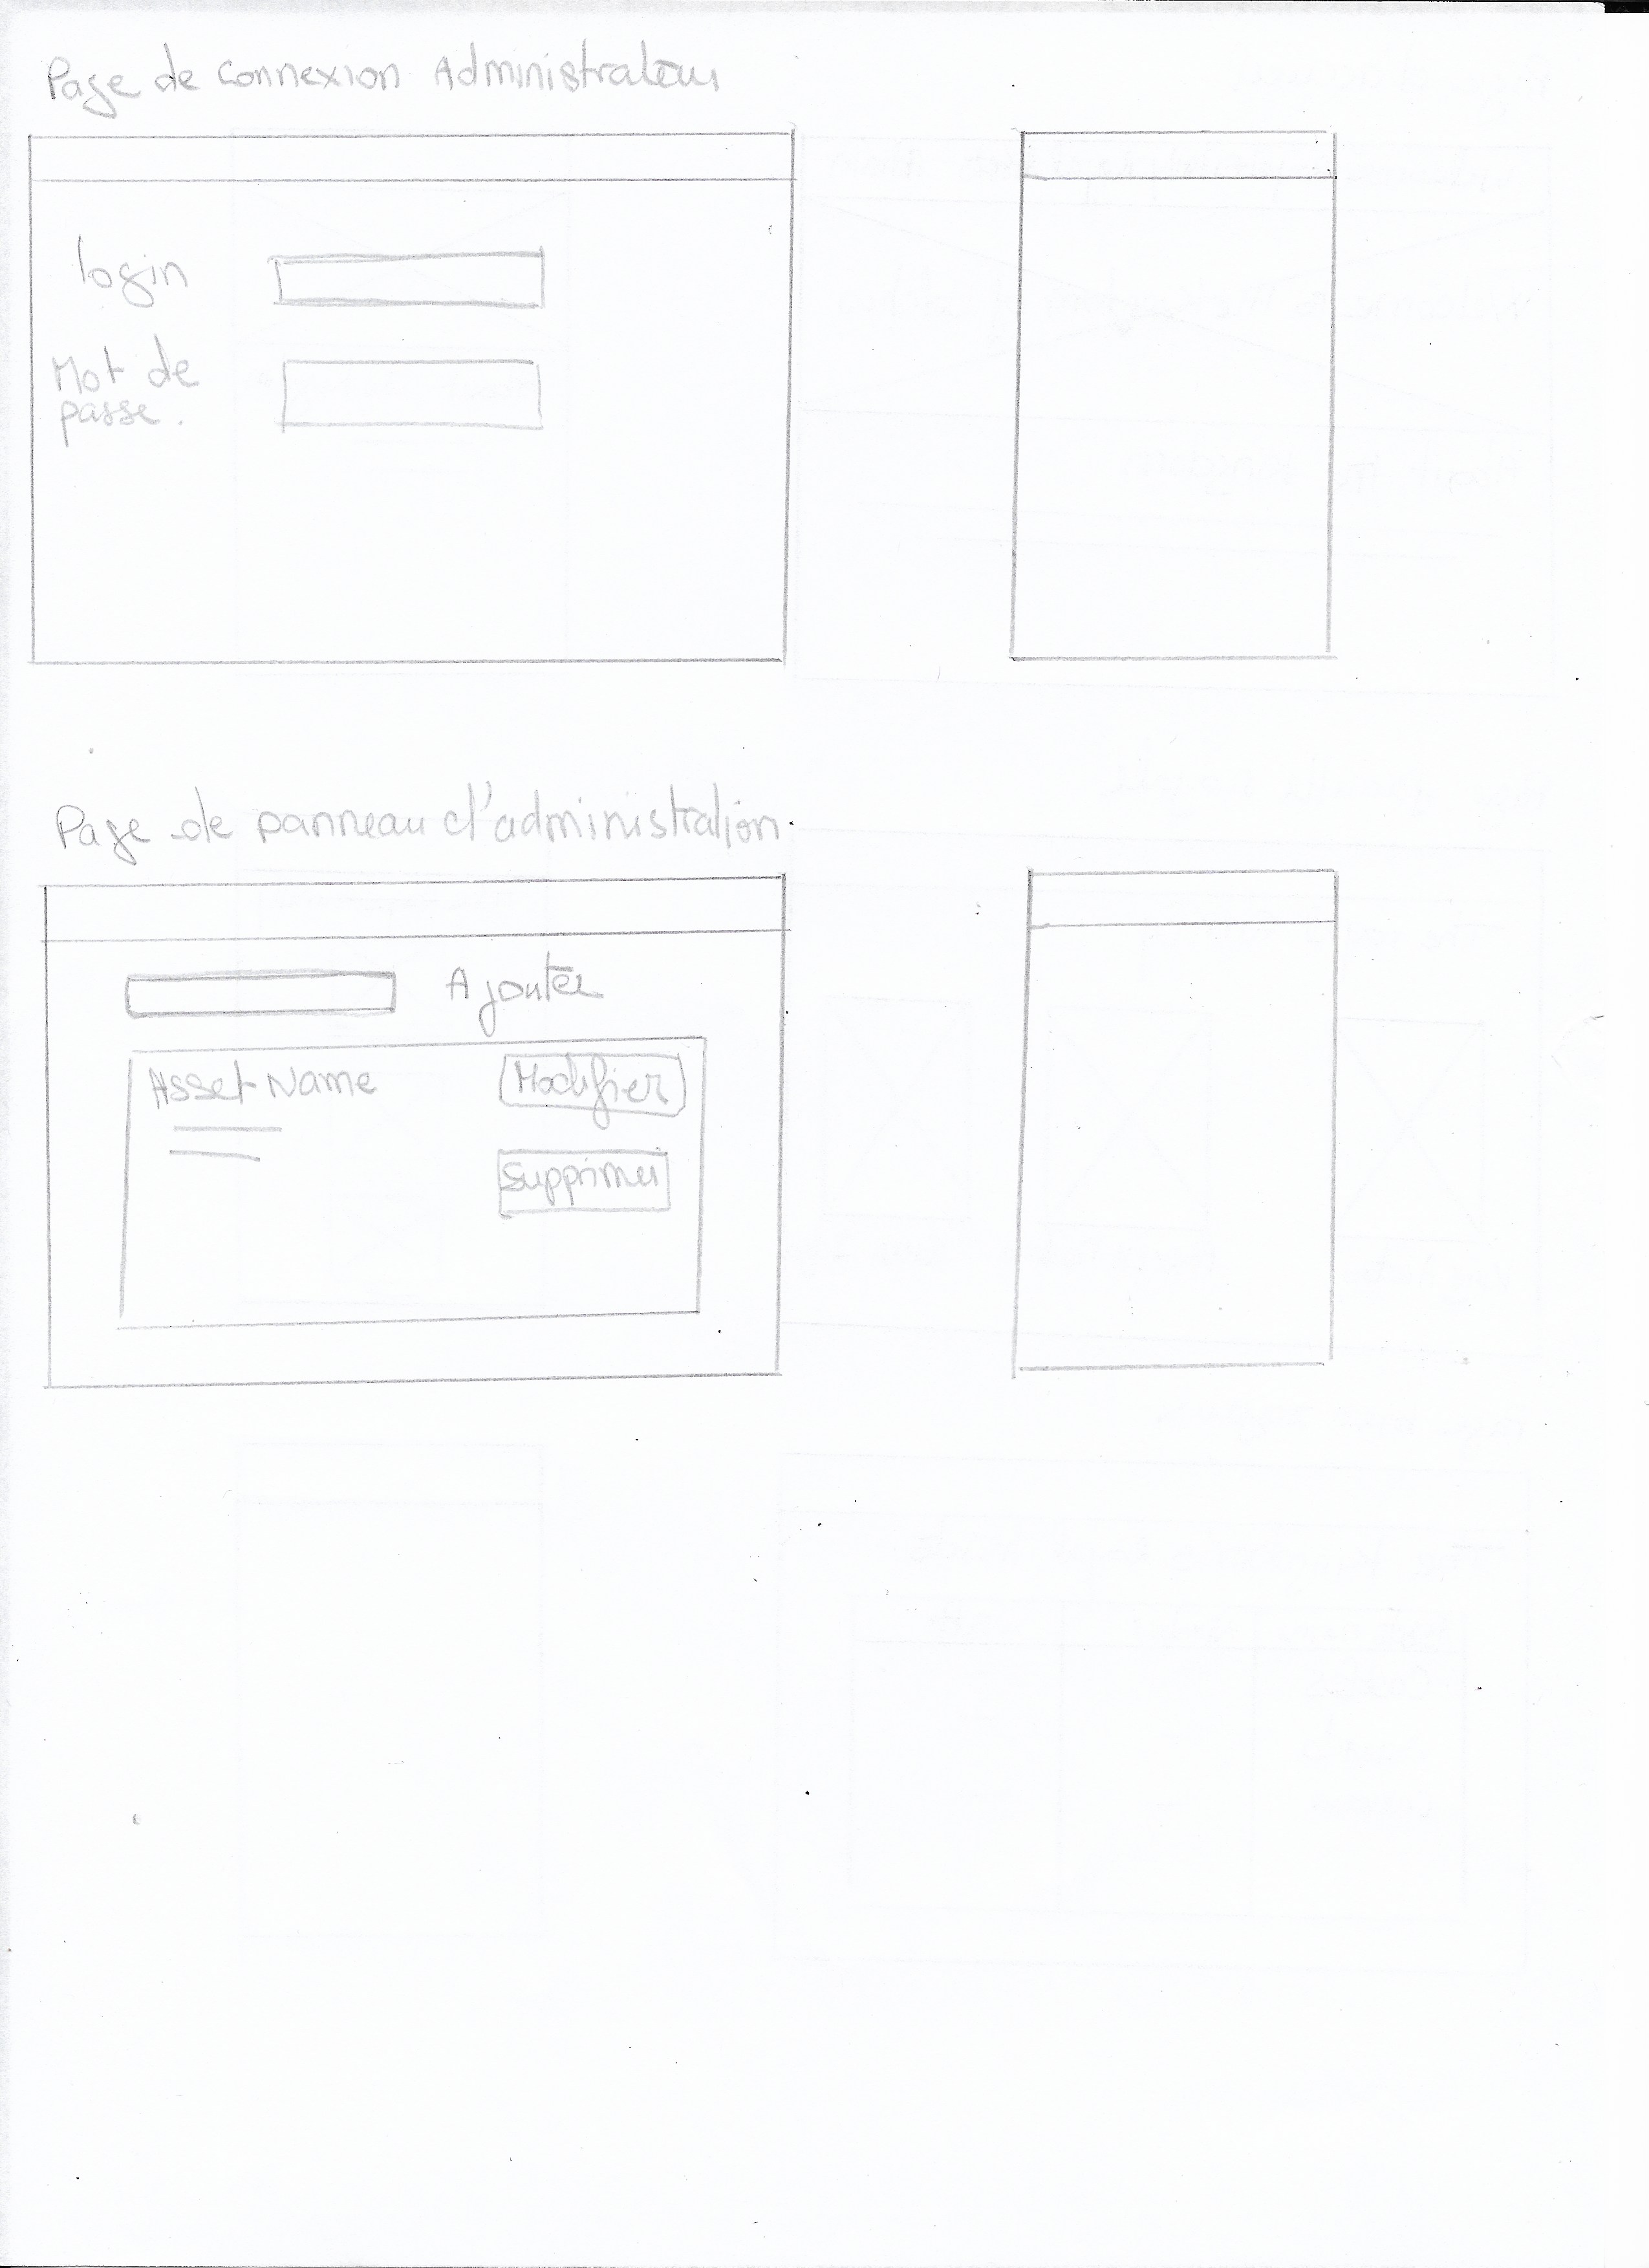 Page de connexion Administrateur
login
Mot de
passe.
Page de panneau d'administration.
Ajouter
Asset Name
Modifier
Supprimer